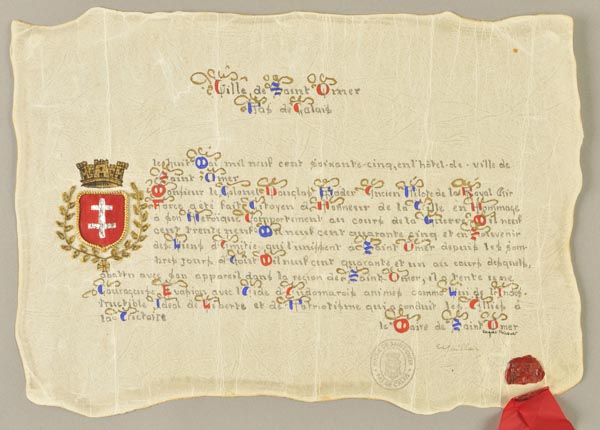 Ville de Saint Omer
Pas de Calais
le huit Mai mil neuf cent soixante-cinq, en l'hôtel-de-ville de
Saint Omer
Monsieur le Colonel Douglas Bader Ancien Pilote de la Royal Air
Force a été fait Citoyen d'Honneur de la Ville en Hommage
à son Héroïque Comportement au cours de la Guerre mil neuf
cent trente neuf mil neuf cent quarante cinq et en souvenir
des liens d'amitié qui l'unissent à Saint Omer depuis les som-
bres jours d'Août mil neuf cent quarante et un au cours desquels,
abattu avec son appareil dans la région de Saint-Omer, il a tenté une
Courageuse Evasion avec l'Aide d'Audomarois animés comme lui de l'Indes-
tructible Idéal de Liberté et de Patriotisme qui a conduit les Alliés à
la Victoire
le Maire de Saint Omer